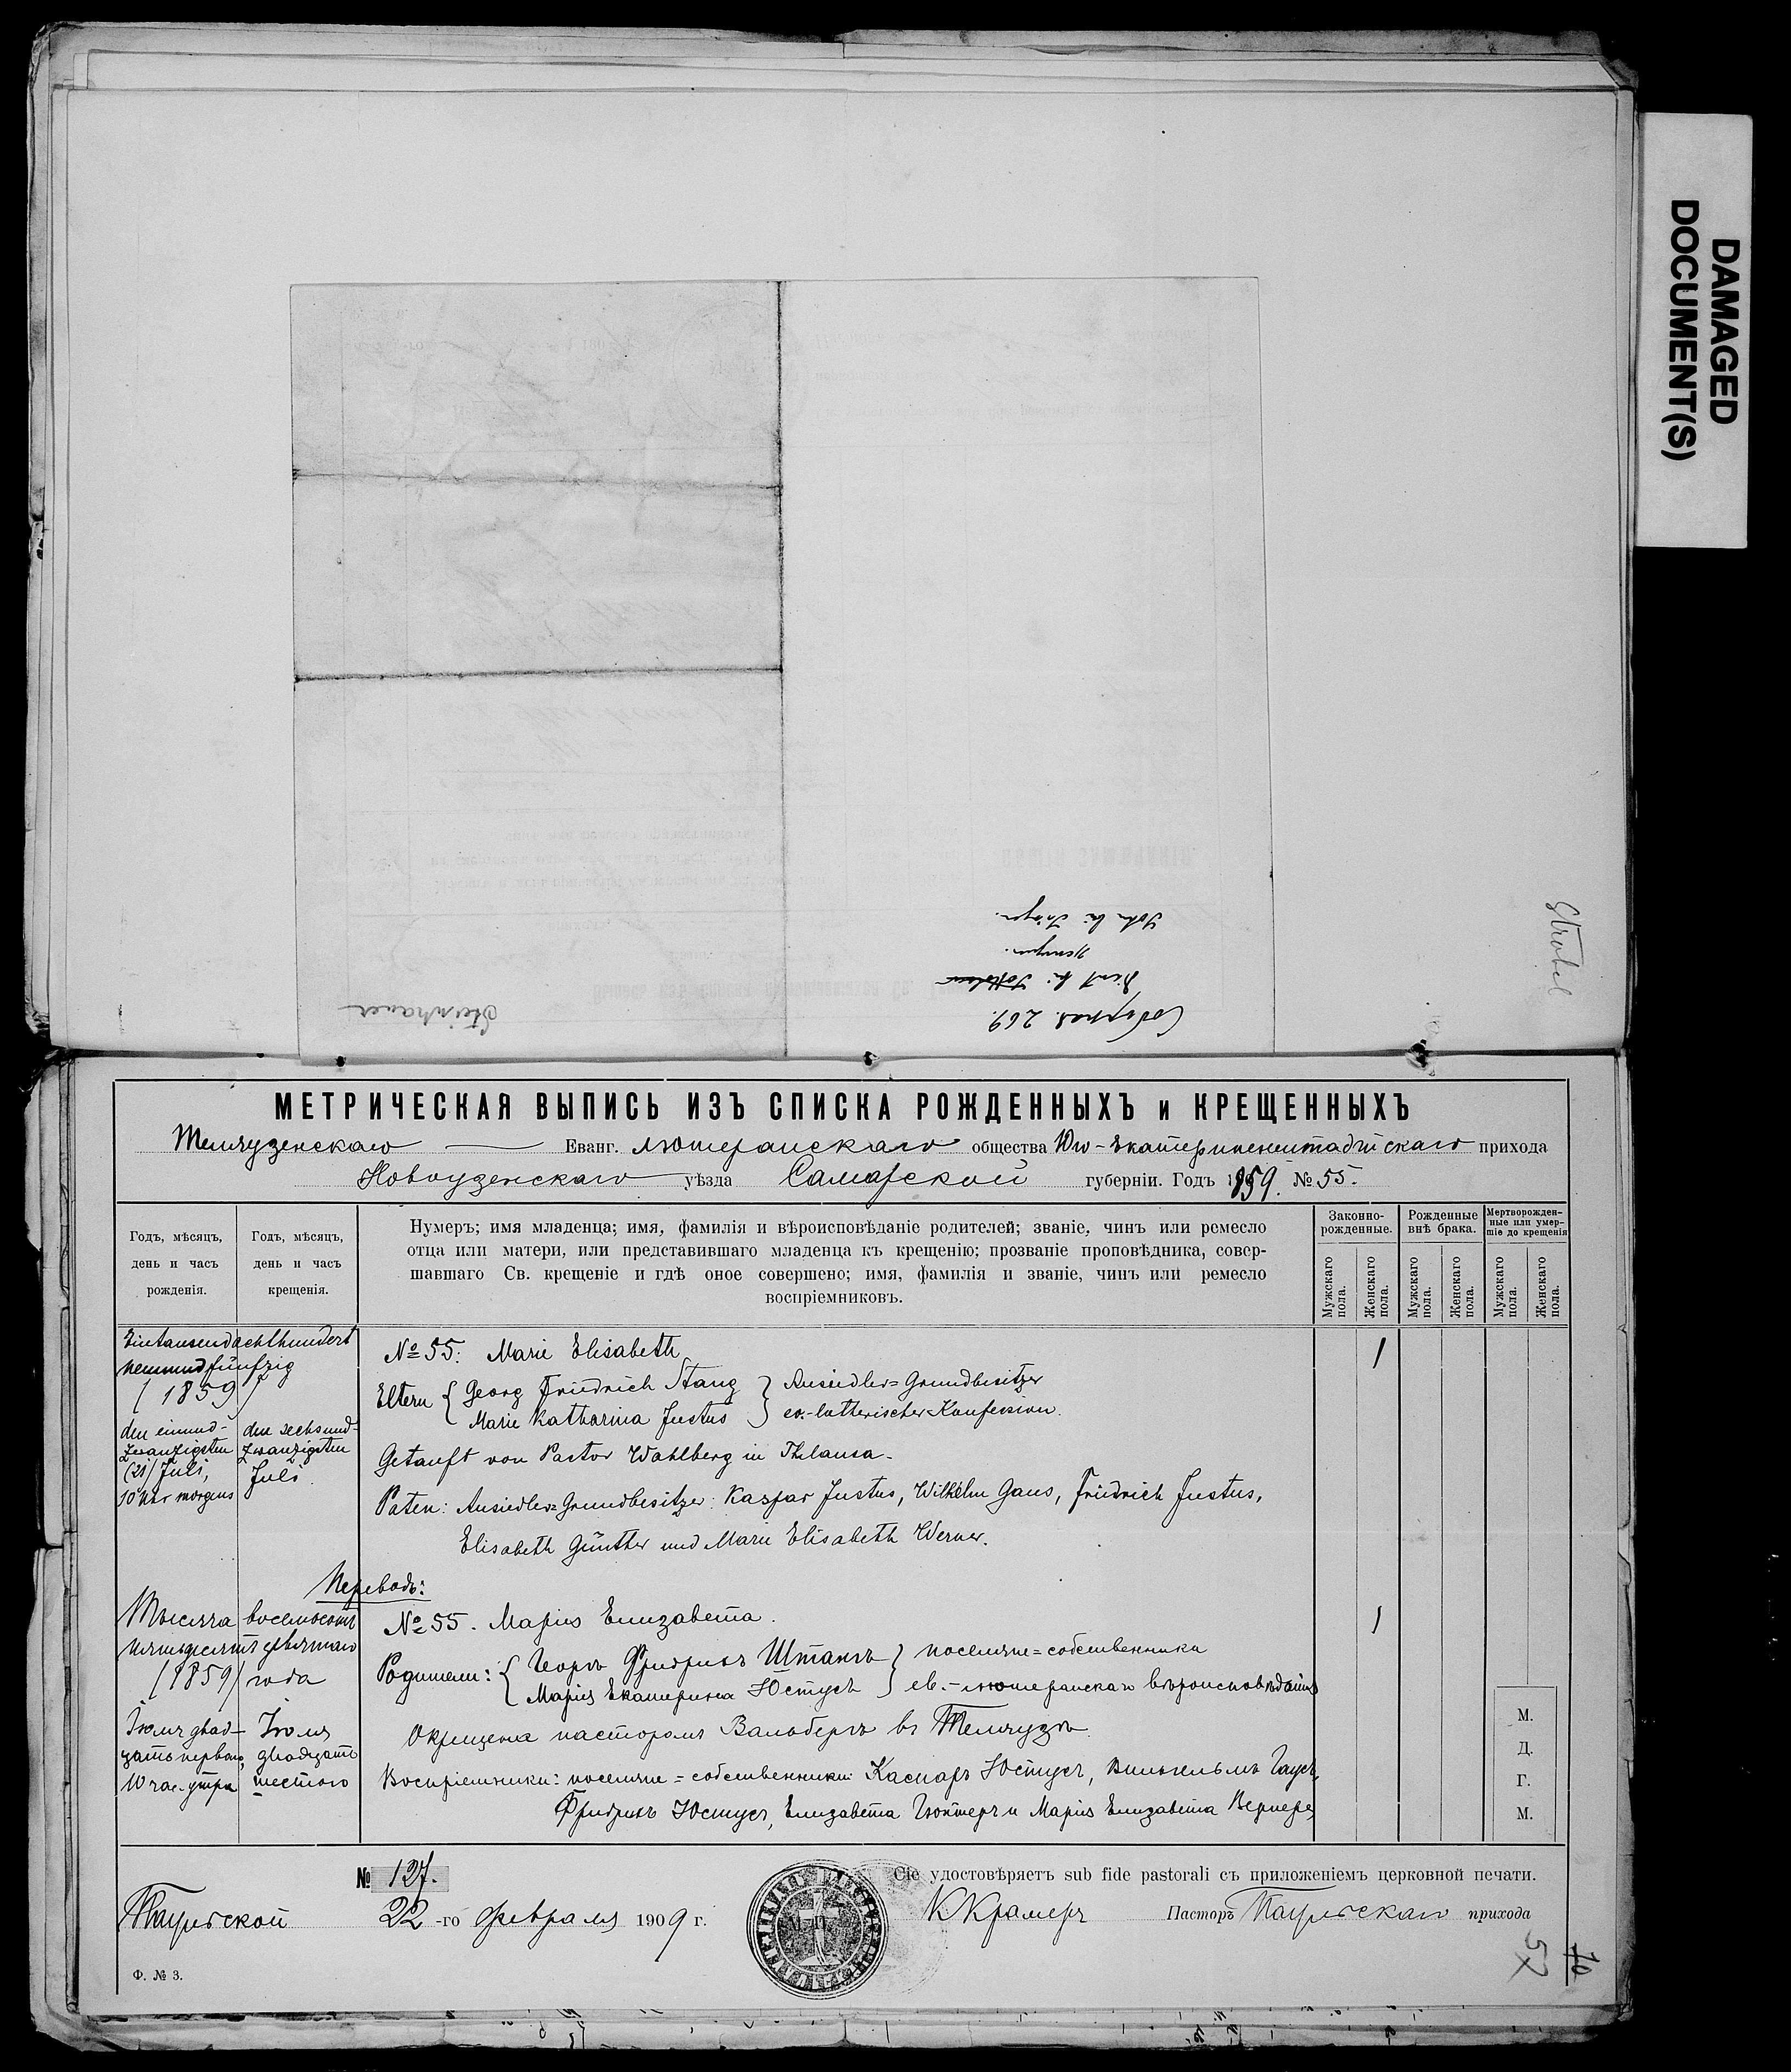 DAMAGED
DOCUMENT(S)
Strobel
Steinhauer
МЕТРИЧЕСКАЯ ВЫПИСЬ ИЗЪ СПИСКА РОЖДЕННЫХЪ и КРЕЩЕННЫХЪ
Теляузенскаго Еванг. лютеранскаго общества Юго-Екатериненштадтскаго прихода
Новоузенскаго уѣзда Самарской губерніи. Годъ 1859. № 55.
Годъ, мѣсяцъ, день и часъ рожденія.
Годъ, мѣсяцъ, день и часъ крещенія.
Нумеръ; имя младенца; имя, фамилія и вѣроисповѣданіе родителей; званіе, чинъ или ремесло
отца или матери, или представившаго младенца къ крещенію; прозваніе проповѣдника, совер-
шавшаго Св. крещеніе и гдѣ оное совершено; имя, фамилія и званіе, чинъ или ремесло
воспріемниковъ.
Законно-рожденные.
Рожденные внѣ брака.
Мертворожден-ные или умер-шіе до крещенія
Мужскаго пола.
Женскаго пола.
Мужскаго пола.
Женскаго пола.
Мужскаго пола.
Женскаго пола.
Eintausendachthundert
neunundfünfzig
(1859)
den einund-
zwanzigsten
(21) Juli,
10 Uhr morgens
den sechsund-
zwanzigsten
Juli.
№ 55: Marie Elisabeth
1
Eltern { Georg Friedrich Stang } Ansiedler=Grundbesitzer
Marie Katharina Justus } ev.-lutherischer Konfession.
Getauft von Pastor Wahlberg in
Paten: Ansiedler=Grundbesitzer: Kaspar Justus, Wilhelm Gaus, Friedrich Justus,
Elisabeth Günther und Marie Elisabeth Werner.
Переводъ:
Тысяча восемьсотъ
пятьдесятъ девятаго
(1859) года
Іюля двад-
цать перваго,
10 час. утра
Іюля
двадцать
шестого
№ 55. Марія Елизавета.
1
Родители: { Георгъ Фридрихъ Штангъ } поселяне=собственники
Марія Екатерина Юстусъ } ев.-лютеранскаго вѣроисповѣданія
Окрещена пасторомъ Вальбергъ въ
Воспріемники: поселяне=собственники: Каспаръ Юстусъ, Вильгельмъ Гаусъ,
Фридрихъ Юстусъ, Елизавета Гюнтеръ и Марія Елизавета Вернеръ
М.
Д.
Г.
М.
№ 127.
Сіе удостовѣряетъ sub fide pastorali съ приложеніемъ церковной печати.
22-го февраля 1909 г.
К Крамеръ Пасторъ прихода
Ф. № 3.
57